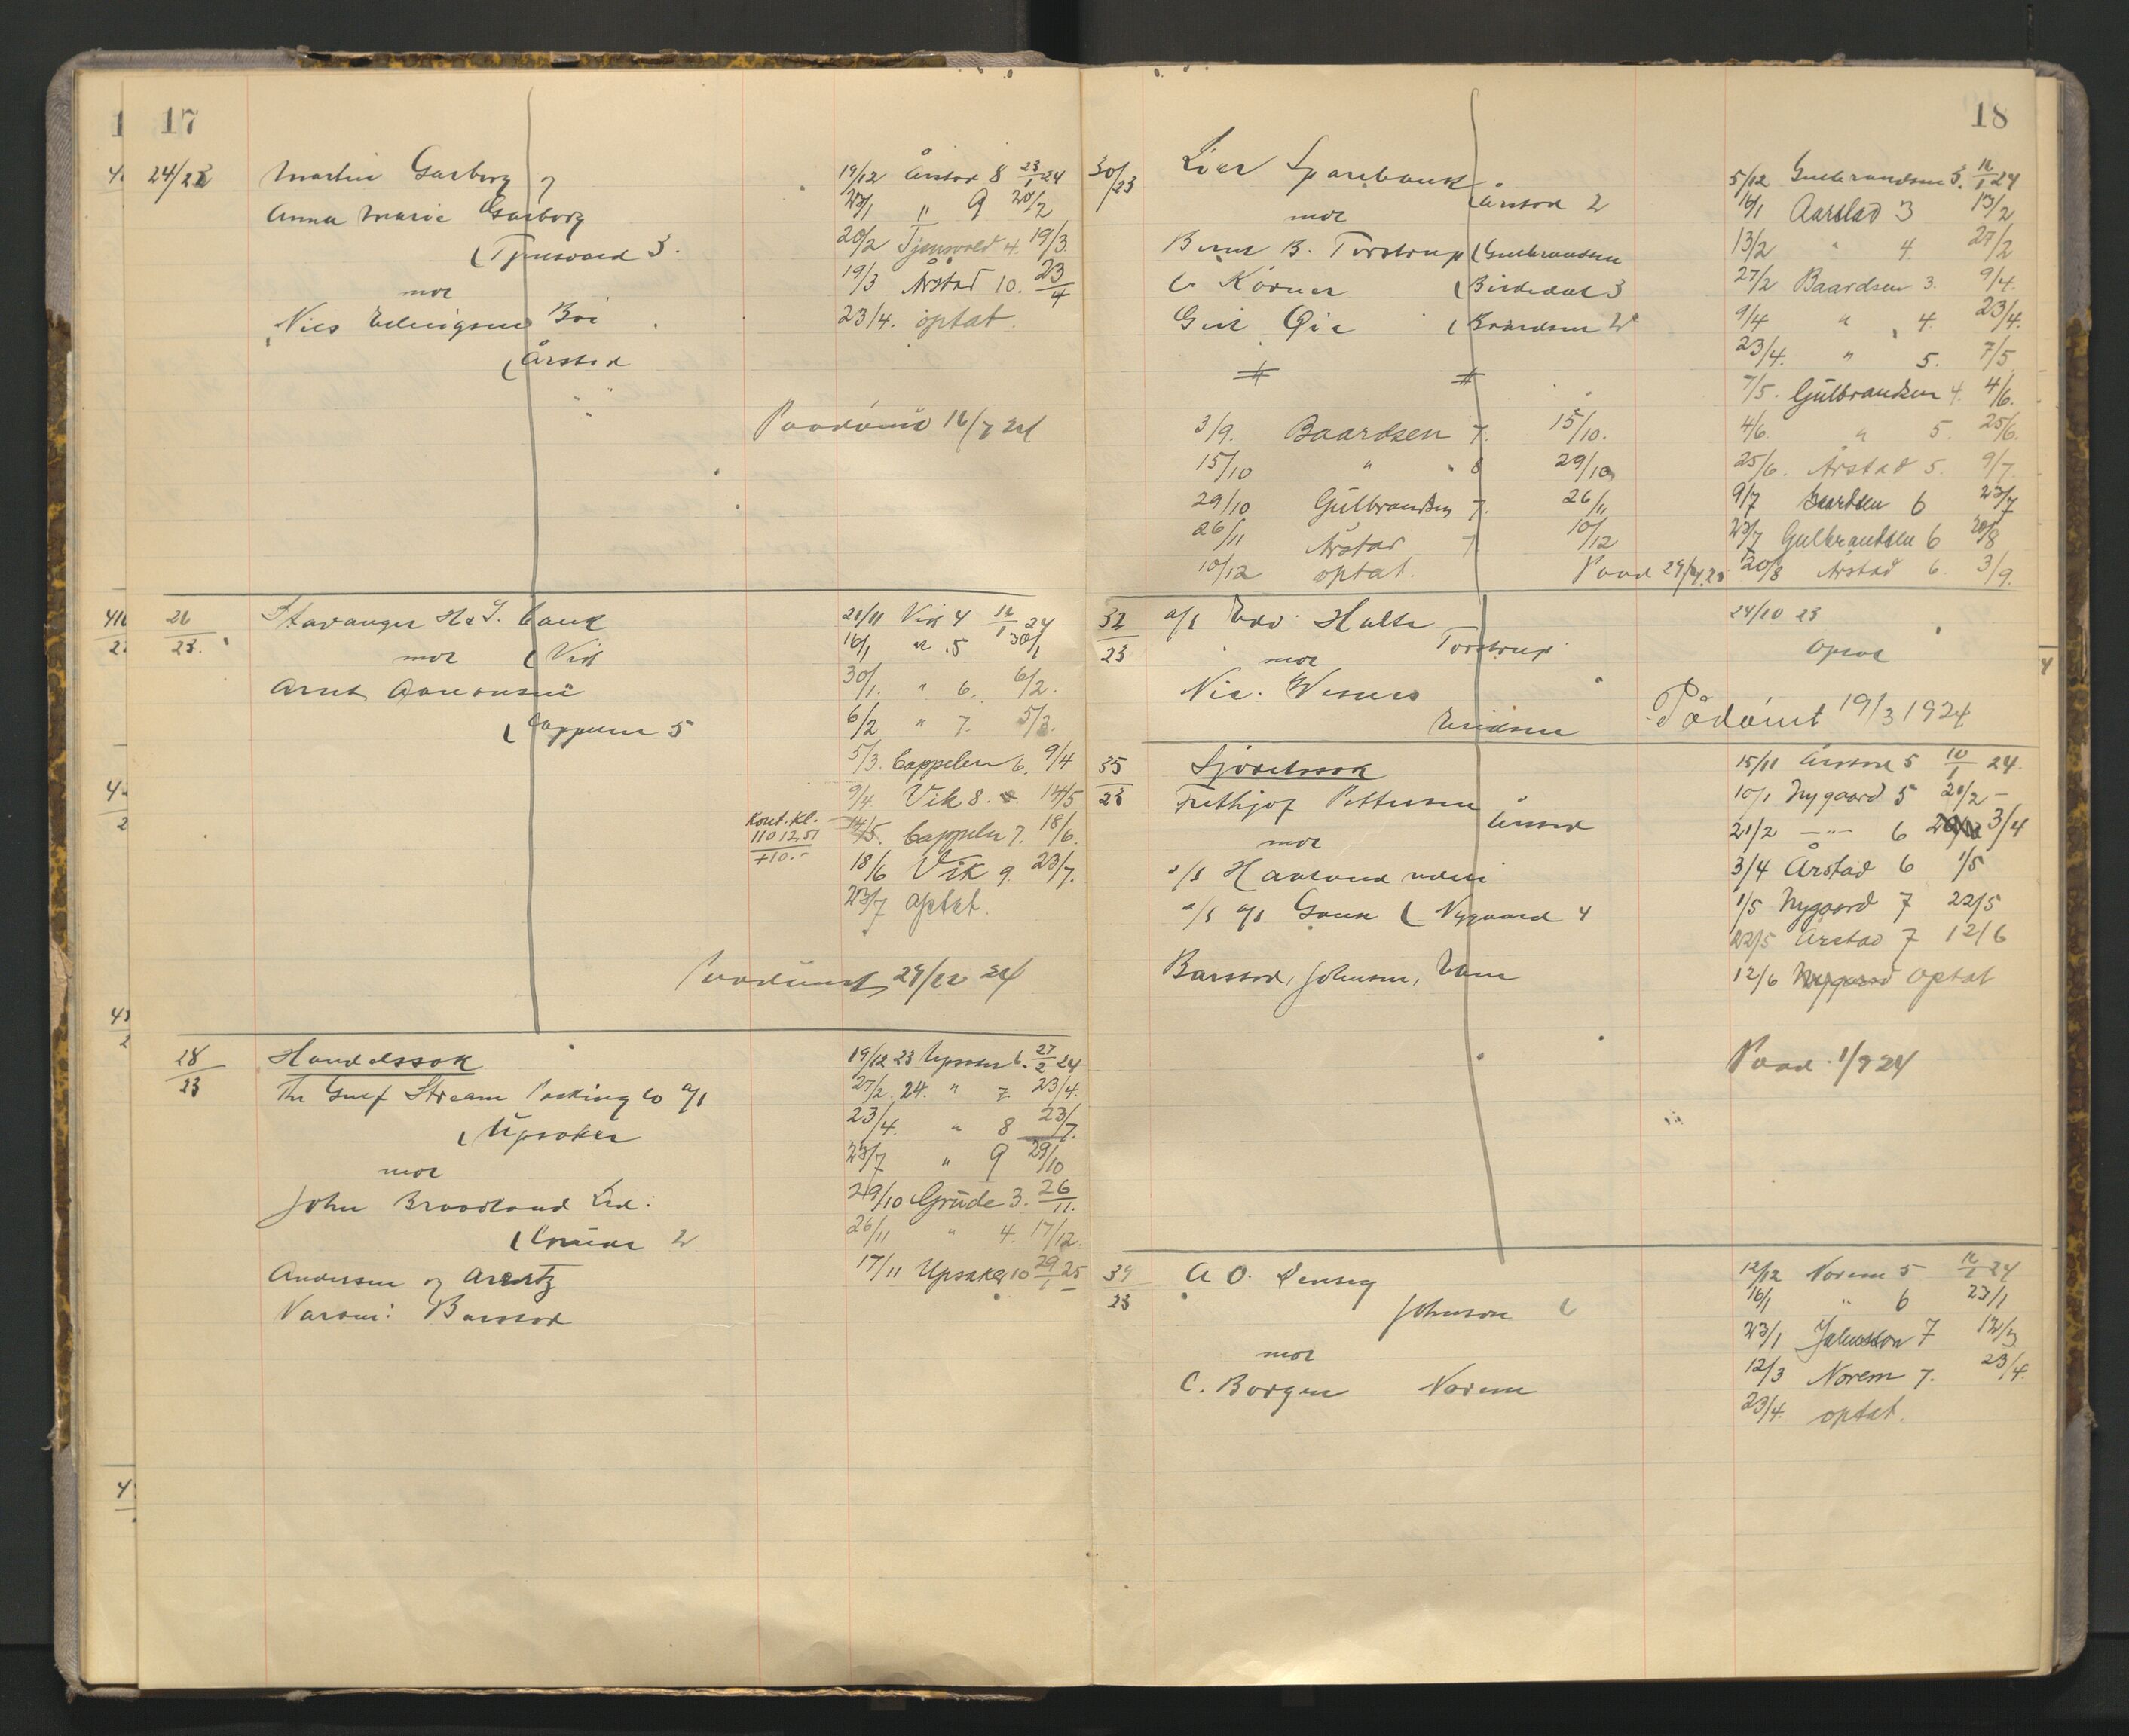 17
24/23
Martin Garborg og
Anna Marie Garborg
(Tjensvold 3.
mot
Nils Boi
(Årstad
19/12 Årstad 8 23/1 24
23/1 " 9 20/2
20/2 Tjensvold 4. 19/3
19/3 Årstad 10. 23/4
23/4. optat.
Paadømt 16/7 24
26/23.
Stavanger H & I. bank
mot (Vik
Arnt
(Cappelen 5
21/11 Vik 4 16/1 24
16/1 " 5 30/1
30/1. " 6. 6/2.
6/2 " 7. 5/3.
5/3. Cappelen 6. 9/4
9/4. Vik 8. 14/5
Kont. Kl.
110 12,57
+10.-
14/5. Cappelen 7. 18/6.
18/6 Vik 9. 23/7.
23/7 optat.
Paadømt 29/12 24
28/23
Handelssak
The Gulf Stream Packing Co A/S
(Upsaker
mot
John Broadland Ltd.
(Grude 2
Andersen og Arentz
Varsm: Barstad
19/12 23 Upsaker 6. 27/2 24
27/2. 24. " 7. 23/4.
23/4. " 8 23/7.
23/7 " 9 29/10
29/10 Grude 3. 26/11.
26/11 " 4. 17/12.
17/11 Upsaker 10 29/1 25
18
30/23
Lier Sparebank
(Årstad 2
mot
Bernt B. Torstrup (Gulbrandsen
C. Körner (Birkedal 3
Geir Øie (Baardsen 2
3/9. Baardsen 7. 15/10.
15/10 " " 8 29/10
29/10 Gulbrandsen 7. 26/11
26/11 Årstad 7 10/12
10/12 optat.
5/12 Gulbrandsen 3. 16/1 24
16/1 Aarstad 3 13/2
13/2 " 4. 27/2
27/2 Baardsen 3. 9/4.
9/4 " 4. 23/4.
23/4. " 5. 7/5
7/5. Gulbrandsen 4. 4/6.
4/6. " 5. 25/6.
25/6. Årstad 5. 9/7
9/7 Baardsen 6 23/7
23/7 Gulbrandsen 6 20/8
20/8 Årstad 6. 3/9.
32/23
A/S Edv. Holte
Torstrup
mot
Nic. Wesnes
Eriksen
24/10 23
optat
Pådømt 19/3 1924
35/23
Sjørettssak
Frithjof Pettersen
Årstad
mot
a/s Haaland
a/s (Nygaard 4
Barstad, Johnsen,
15/11 Årstad 5 10/1 24.
10/1 Nygaard 5 21/2 -
21/2 — " — 6 3/4
3/4 Årstad 6 1/5
1/5 Nygaard 7 22/5
22/5 Årstad 7 12/6
12/6 Nygaard optat
Paad. 1/9 24
39/23
A O. Densey
Johnson 6
mot
C. Borgen Norem
12/12 Norem 5 16/1 24
16/1 " 6 23/1
23/1 Johnson 7 12/3
12/3 Norem 7. 23/4.
23/4. optat.